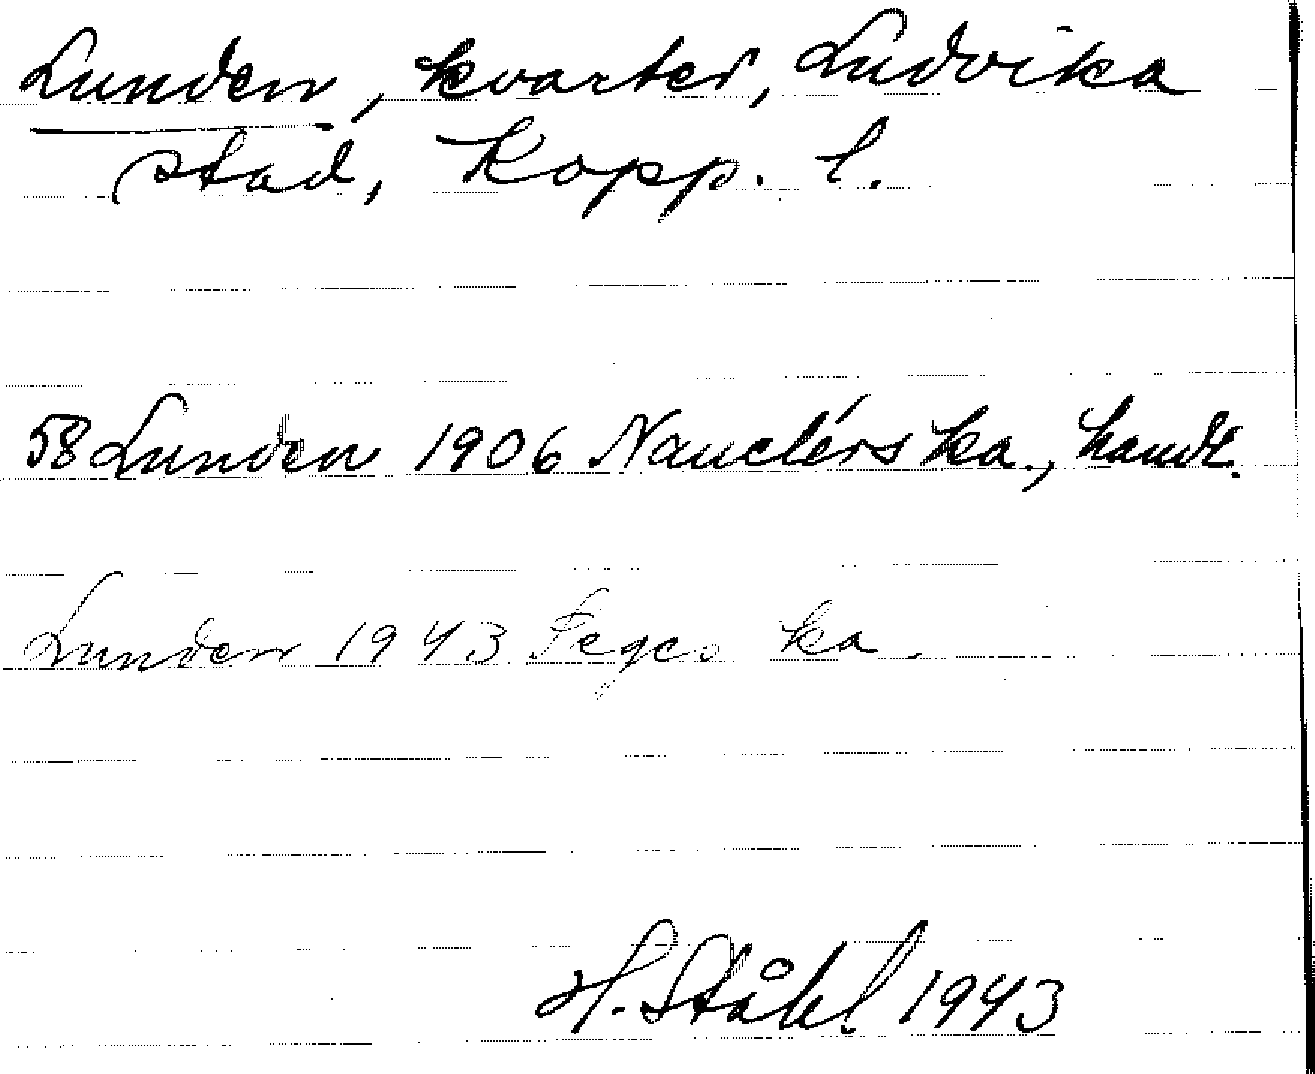 Lunden, kvarter, Ludvika
stad, Kopp. l.
58 Lunden 1906 Nauclérs ka., handl.
Lunden 1943 Feges ka.
H. Ståhl 1943